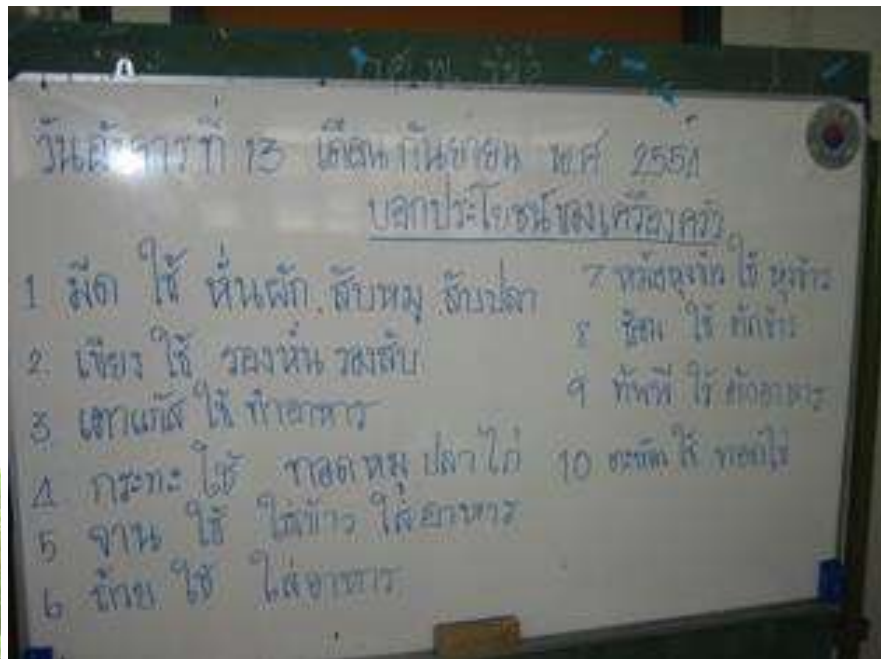 วันอังคารที่ 13 เดือน กันยายน พ.ศ 2554
บอกประโยชน์ของเครื่องครัว
1 มีด ใช้ หั่นผัก สับหมู สับปลา
2 เขียง ใช้ รองหั่น รองสับ
3 เตาแก๊ส ใช้ ทำอาหาร
4 กระทะ ใช้ ทอดหมู ปลา ไก่
5 จาน ใช้ ใส่ข้าว ใส่อาหาร
6 ถ้วย ใช้ ใส่อาหาร
7 หม้อหุงข้าว ใช้ หุงข้าว
8 ช้อน ใช้ ตักข้าว
9 ทัพพี ใช้ ตักอาหาร
10 ตะหลิว ใช้ ทอดไข่